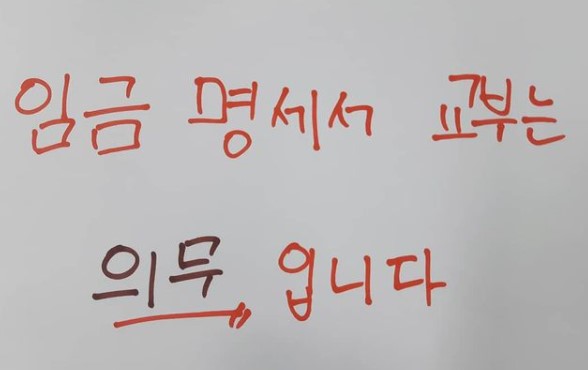 임금 명세서 교부는
의무 입니다